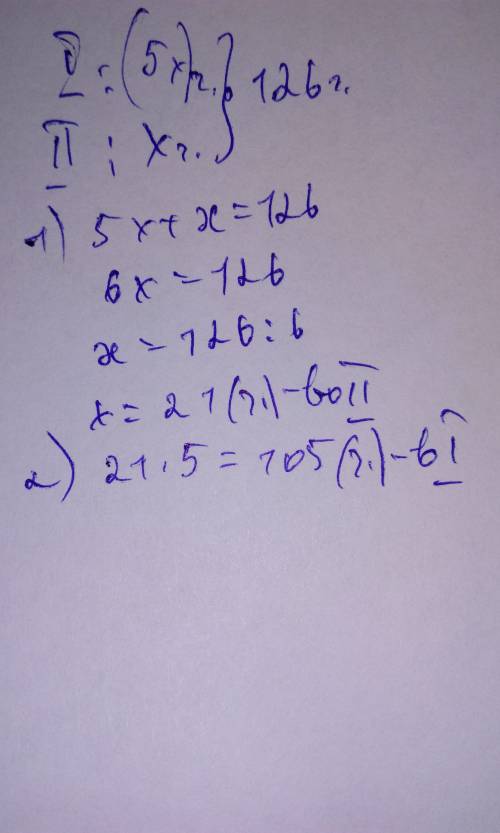 I : (5x)г. } 126г.
II : xг.
1) 5x + x = 126
6x = 126
x = 126 : 6
x = 21 (г.) - во II
2) 21 . 5 = 105 (г.) - в I